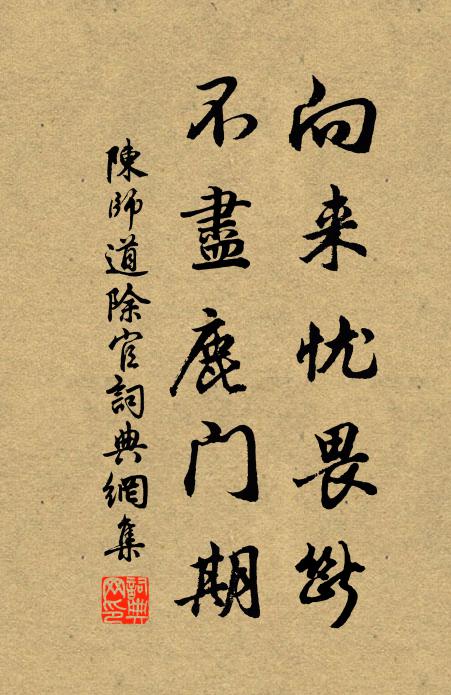 向来忧畏断
不盡鹿门期
陳師道除官詞典網集
詞典网印